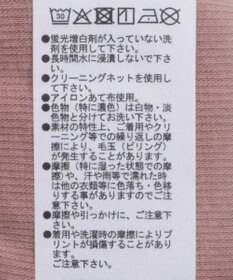 30
●蛍光増白剤が入っていない洗
剤を使用して下さい。
●長時間水に浸漬しないで下さ
い。
●クリーニングネットを使用して
下さい。
●アイロンあて布使用。
●色物(特に濃色)は白物・淡
色物と分けてお洗い下さい。
●素材の特性上、ご着用やクリ
ーニング等での繰り返しの摩
擦により、毛玉(ピリング)
が発生することがあります。
ご注意下さい。
●摩擦(特に湿った状態での摩
擦)や、汗や雨等で濡れた時
は他の衣類等に色落ち・色移
りする事が有りますのでご注
意下さい。
●摩擦や引っかけに、ご注意下
さい。
●着用や洗濯時の摩擦によりプ
リントが損傷することがあり
ます。
ご注意下さい。